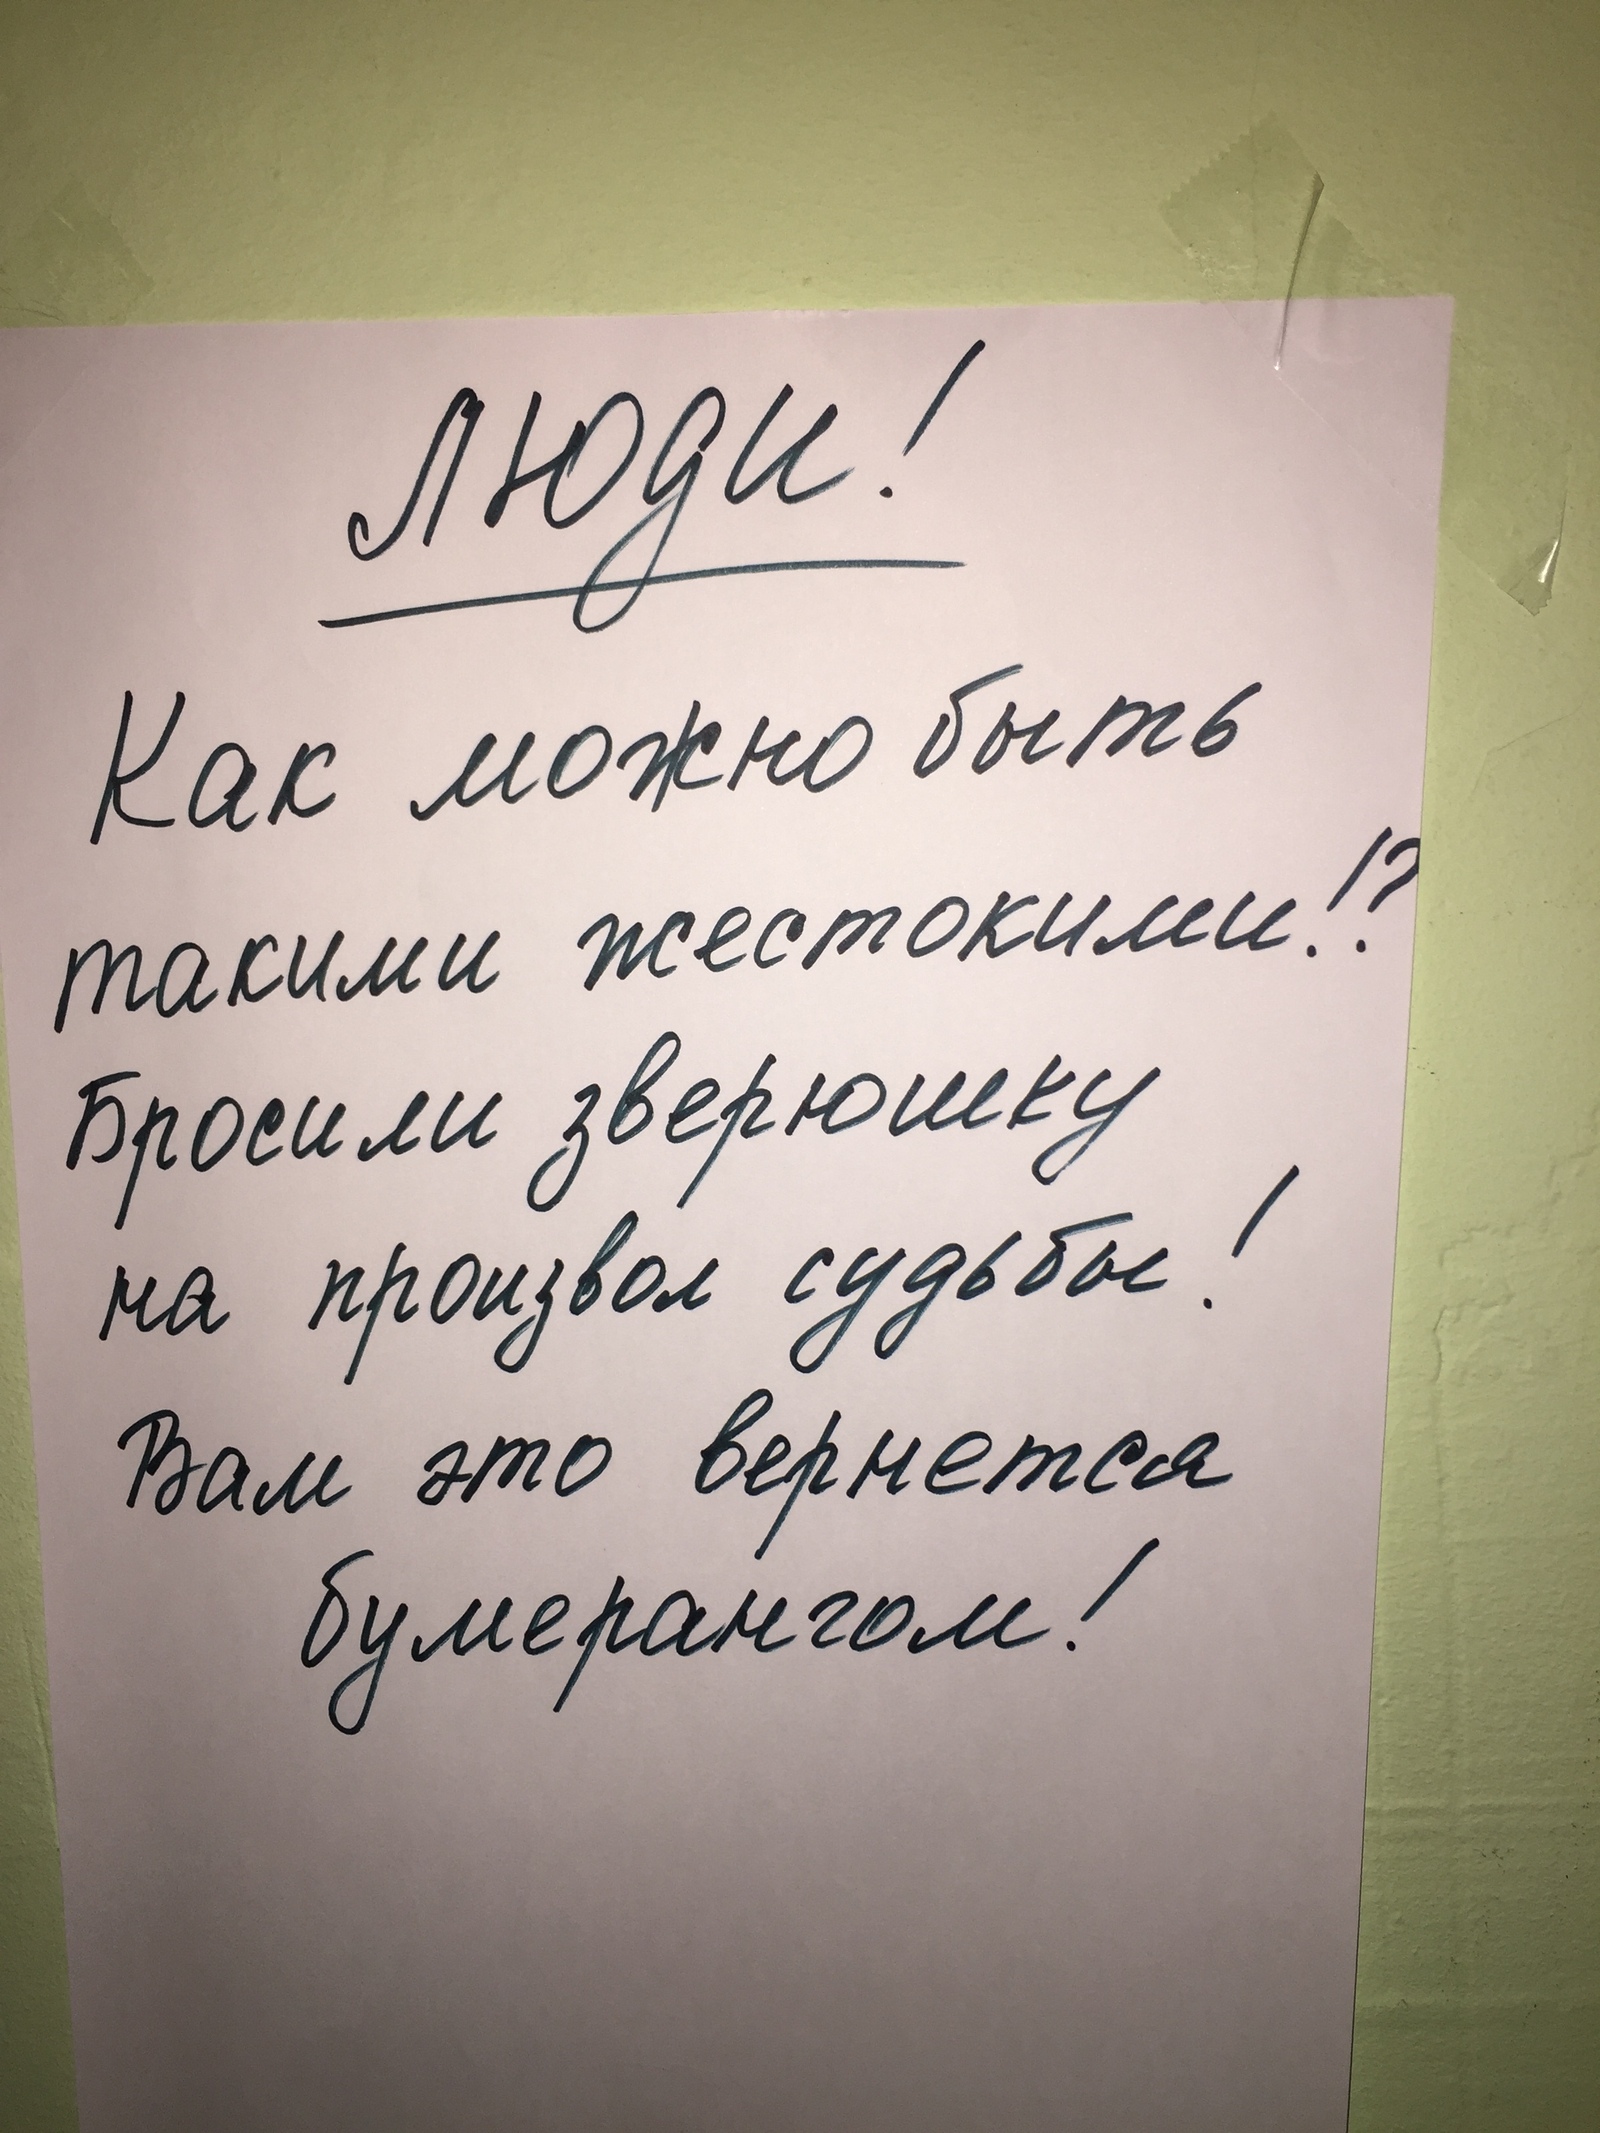 Люди!
Как можно быть
такими жестокими!?
Бросили зверюшку
на произвол судьбы!
Вам это вернется
бумерангом!